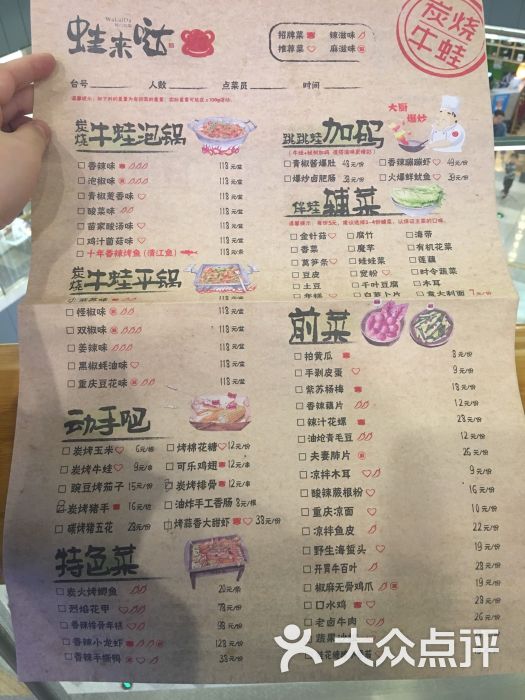 WaLaiDa
蛙来哒
招牌菜 辣滋味
推荐菜 麻滋味
炭烧牛蛙
台号 人数 点菜员 时间
炭烧 牛蛙泡锅
香辣味 118元/盆
泡椒味 118元/盆
青椒葱香味 118元/盆
酸菜味 118元/盆
苗家酸汤味 118元/盆
鸡汁菌菇味 118元/盆
十年香辣烤鱼（清江鱼） 118元/条
炭烧 牛蛙平锅
怪椒味 118元/盆
双椒味 118元/盆
姜辣味 118元/盆
黑椒蚝油味 118元/盆
重庆豆花味 118元/盆
动手吧
炭烤玉米 6元/根
炭烤牛蛙 9元/串
豌豆烤茄子 15元/份
炭烤猪手 16元/份
碳烤猪五花 28元/份
烤棉花糖 12元/份
可乐鸡翅 12元/串
炭烤排骨 12元/串
油炸手工香肠 8元/根
烤蒜香大甜虾 38元/份
特色菜
炭火烤鲫鱼 20元/条
烈焰花甲 78元/份
香辣排骨年糕 98元/份
香辣小龙虾 128元/份
香辣手撕鸭 38元/份
大厨爆炒
跳跳蛙 加码
青椒酱爆肚 48元/份
爆炒卤肥肠 38元/份
香辣蹦蹦虾 49元/份
火爆鲜鱿鱼 39元/份
伴蛙 辅菜
金针菇 腐竹 海带
香菜 魔芋 有机花菜
莴笋条 蛙蛙菜 莲藕
豆皮 宽粉 时令蔬菜
土豆 千叶豆腐 木耳
年糕 白萝卜片 意大利面 7元/份
前菜
拍黄瓜 8元/份
手剥皮蛋 9元/份
紫苏杨梅 18元/份
香辣藕片 9元/份
辣汁花螺 28元/份
油焓青毛豆 9元/份
夫妻肺片 26元/份
凉拌木耳 9元/份
酸辣蕨根粉 9元/份
重庆凉面 10元/份
凉拌鱼皮 22元/份
野生海蜇头 19元/份
开胃牛百叶 28元/份
椒麻无骨鸡爪 28元/份
口水鸡
老卤牛肉
大众点评